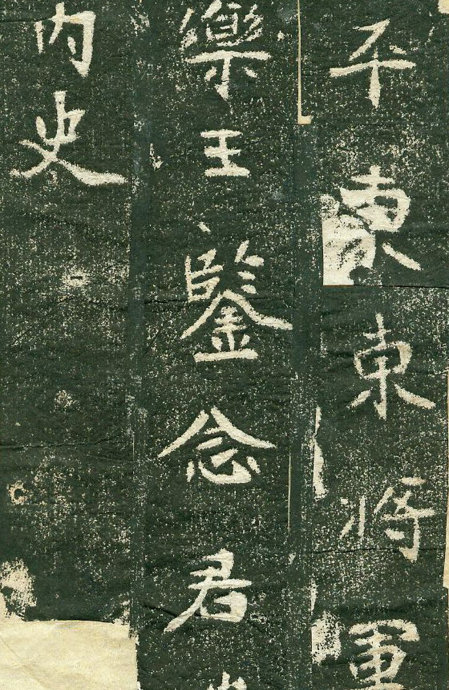 平東東將軍
樂王鑒念君
内史